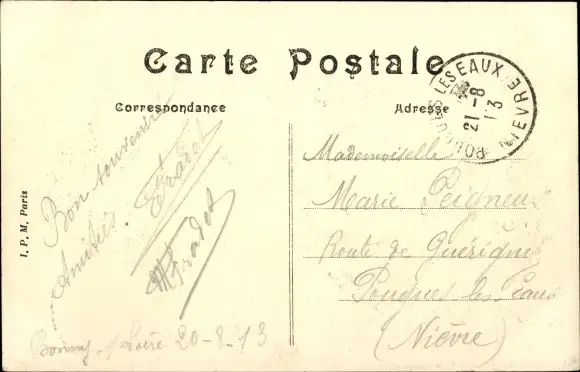 Carte Postale
Correspondance
Adresse
POUGUES LES EAUX
21-8
13
NIEVRE
Bon souvenir
Amitiés.
Fradet
M Fradet
Bonny s/Loire 20-8-13
I. P. M. Paris
Mademoiselle
Marie Peigneux
Route de Guérigny
Pougues les Eaux
(Nièvre)